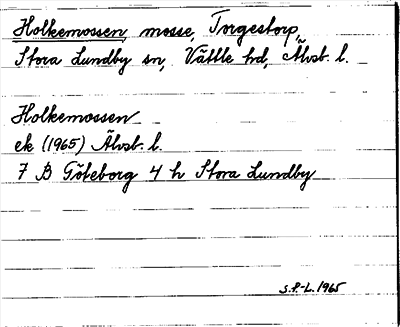 Holkemossen, mosse, Torgestorp,
Stora Lundby sn, Vättle hd, Älvsb. l.
Holkemossen
ek (1965) Älvsb. l.
7 B Göteborg 4 h Stora Lundby
S.P.-L. 1965